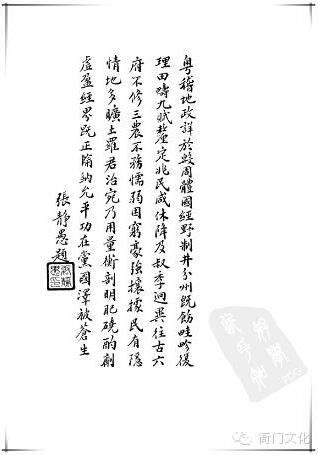 粵稽地政詳於殷周體國經野制井分州既飭畦畛復
理田疇九賦釐定兆民咸休降及叔季迥異往古六
府不修三農不務懦弱困窮豪強攘據民有隱
情地多曠土羅君治宛乃用量衡剖明肥磽酌劑
虛盈經界既正輸納允平功在黨國澤被蒼生
張靜愚題
衙门文化